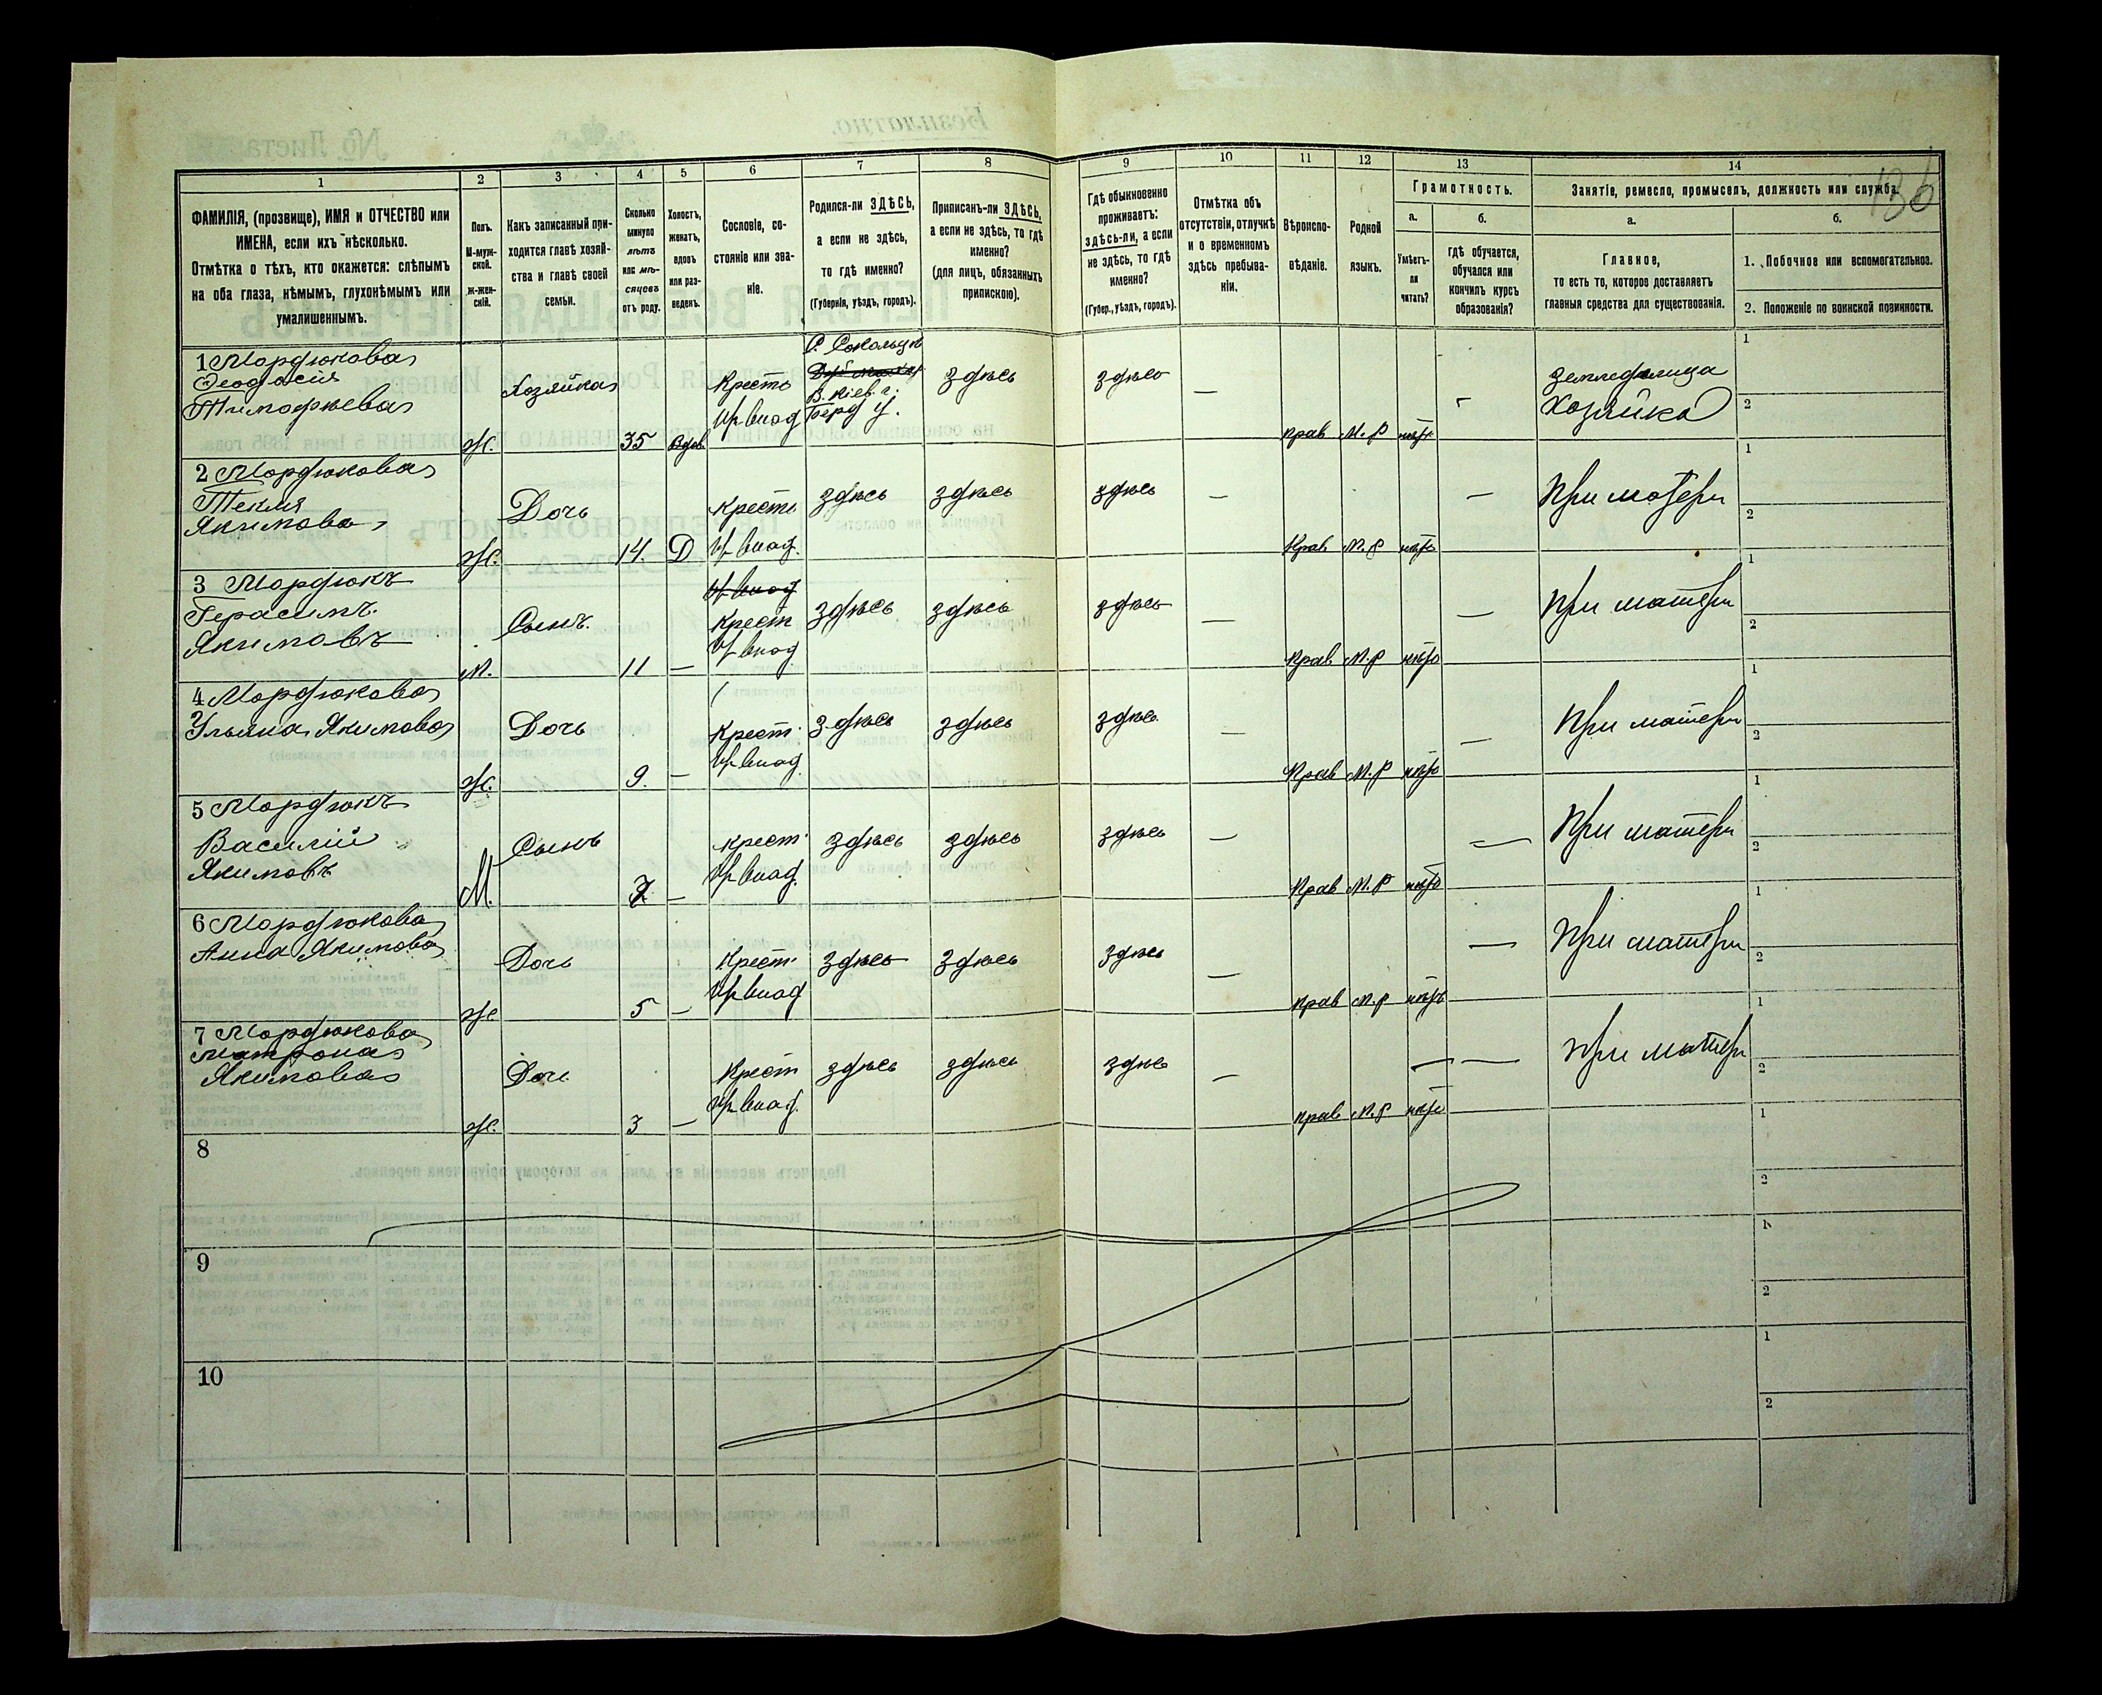 136
1 2 3 4 5 6 7 8 9 10 11 12 13 14
ФАМИЛІЯ, (прозвище), ИМЯ и ОТЧЕСТВО или
ИМЕНА, если ихъ нѣсколько.
Отмѣтка о тѣхъ, кто окажется: слѣпымъ
на оба глаза, нѣмымъ, глухонѣмымъ или
умалишеннымъ.
Полъ.
М-муж-
ской.
ж-жен-
скій.
Какъ записанный при-
ходится главѣ хозяй-
ства и главѣ своей
семьи.
Сколько
минуло
лѣтъ
или мѣ-
сяцевъ
отъ роду.
Холостъ,
женатъ,
вдовъ
или раз-
веденъ.
Сословіе, со-
стояніе или зва-
ніе.
Родился-ли ЗДѢСЬ,
а если не здѣсь,
то гдѣ именно?
(Губернія, уѣздъ, городъ).
Приписанъ-ли ЗДѢСЬ,
а если не здѣсь, то гдѣ
именно?
(для лицъ, обязанныхъ
припискою).
Гдѣ обыкновенно
проживаетъ:
здѣсь-ли, а если
не здѣсь, то гдѣ
именно?
(Губер., уѣздъ, городъ).
Отмѣтка объ
отсутствіи, отлучкѣ
и о временномъ
здѣсь пребыва-
ніи.
Вѣроиспо-
вѣданіе.
Родной
языкъ.
Грамотность.
а.
Умѣетъ-
ли
читать?
б.
гдѣ обучается,
обучался или
кончилъ курсъ
образованія?
Занятіе, ремесло, промыселъ, должность или служба.
а.
Главное,
то есть то, которое доставляетъ
главныя средства для существованія.
б.
1. Побочное или вспомогательное.
2. Положеніе по воинской повинности.
1 Мордюкова
Ѳеодосія
Тимофѣева
Ж.
Хозяйка
35
Вдов
Крест
С. Сокольцѣ
В. Кіев. г.
Берд у.
здѣсь
здѣсь
—
прав
М. р
нѣтъ
земледѣлица
Хозяйка
1
2
2 Мордюкова
Текля
Якимова
Ж.
Дочь
14.
Д
Крест
здѣсь
здѣсь
здѣсь
—
Прав
М. р
нѣтъ
—
При матери
1
2
3 Мордюкъ
Герасимъ
Якимовъ
М.
Сынъ.
11
—
Крест
здѣсь
здѣсь
здѣсь
—
Прав
М. р
нѣтъ
—
При матери
1
2
4 Мордюкова
Ульяна Якимова
Ж.
Дочь
9.
—
Крест.
здѣсь
здѣсь
здѣсь
—
Прав
М. р
нѣтъ
—
При матери
1
2
5 Мордюкъ
Василій
Якимовъ
М.
Сынъ
7
—
крест
здѣсь
здѣсь
здѣсь
—
Прав
М. р
нѣтъ
—
При матери
1
2
6 Мордюкова
Анна Якимова
Ж
Дочь
5
—
Крест.
здѣсь
здѣсь
здѣсь
—
прав
М. р
нѣтъ
—
При матери
1
2
7 Мордюкова
Матрона
Якимова
Ж.
Доч.
3
—
Крест
здѣсь
здѣсь
здѣсь
—
прав
М. р
нѣтъ
—
При матери
1
2
8
1
2
9
1
2
10
1
2